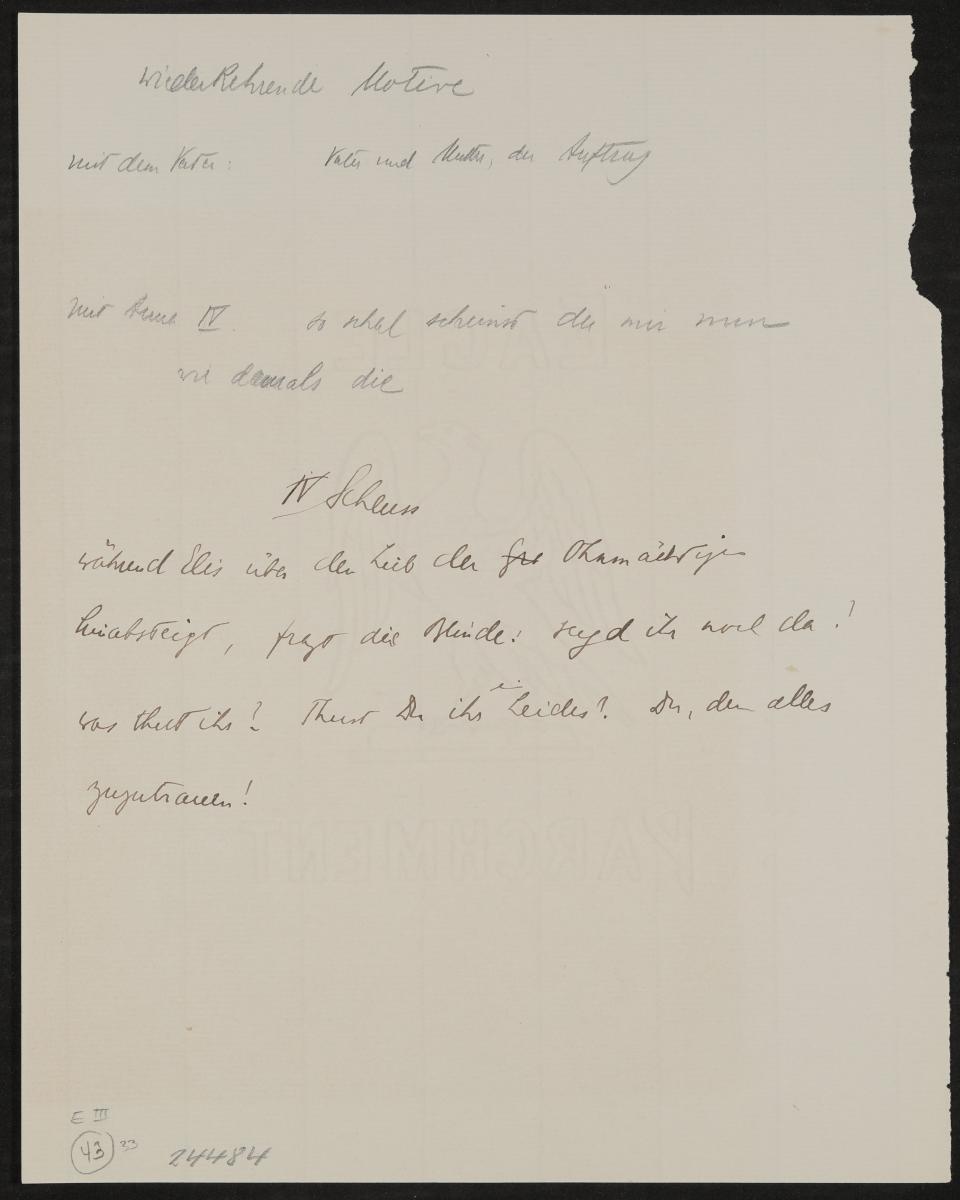 wiederkehrende Motive
mit dem Vater: Vater und Mutter, der Auftrag
mit Anna IV. so schal scheinst du mir nun
wie damals die
IV Schluss
während Elis über den Leib der Ohnmächtigen
hinabsteigt, fragt die Blinde: seyd ihr noch da?
was thut ihr? Thust Du ihr ein Leides? Du, dem alles
zuzutrauen!
E III
43 33
24484
EAGLE
PARCHMENT